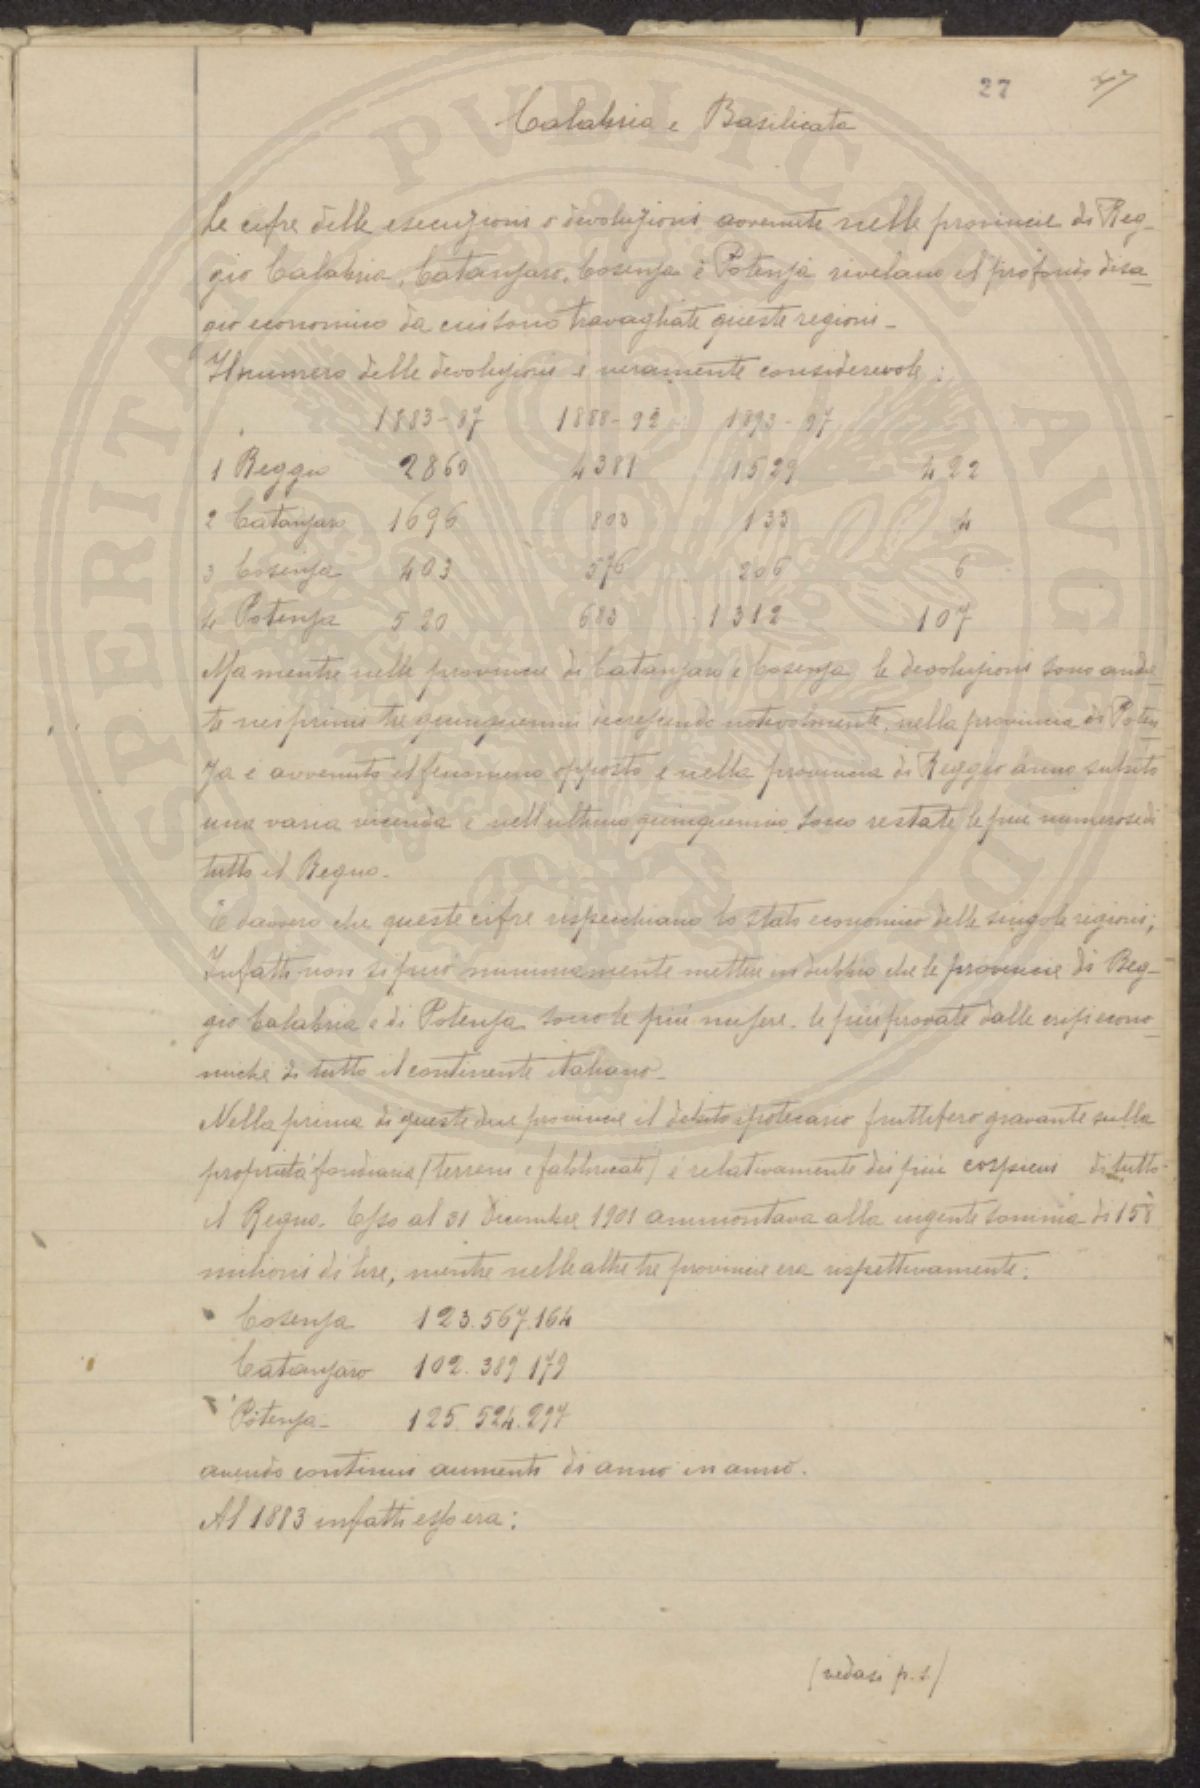 27 47
Calabria e Basilicata
Le cifre delle esecuzioni o devoluzioni avvenute nelle provincie di Reg-
gio Calabria, Catanzaro, Cosenza e Potenza rivelano il profondo disa-
gio economico da cui sono travagliate queste regioni_
Il numero delle devoluzioni è veramente considerevole:
1883-87 1888-92 1893-97
1 Reggio 2860 4381 1529 422
2 Catanzaro 1696 803 133 4
3 Cosenza 403 576 206 6
4 Potenza 520 683 1312 107
Ma mentre nelle provincie di Catanzaro e Cosenza le devoluzioni sono anda-
te nei primi tre quinquenni decrescendo notevolmente, nella provincia di Poten
za è avvenuto il fenomeno opposto e nella provincia di Reggio anno subito
una varia vicenda e nell'ultimo quinquennio sono restate le più numerose di
tutto il Regno.
È davvero che queste cifre rispecchiano lo stato economico delle singole regioni;
Infatti non si può minimamente mettere in dubbio che le provincie di Reg-
gio Calabria e di Potenza sono le più misere, le più provate dalle crisi econo-
miche di tutto il continente italiano_
Nella prima di queste due provincie il debito ipotecario fruttifero gravante sulla
proprietà fondiaria (terreni e fabbricati) è relativamente dei più cospicui di tutto
il Regno. Esso al 31 Dicembre 1901 ammontava alla ingente somma di 158
milioni di lire, mentre nelle altre tre provincie era rispettivamente:
Cosenza 123.567.164
Catanzaro 102.389.179
Potenza_ 125.524.297
avendo continui aumenti di anno in anno.
Al 1883 infatti esso era:
(vedasi p. s)
SPERITAS PVBLICAE AVGENDAE